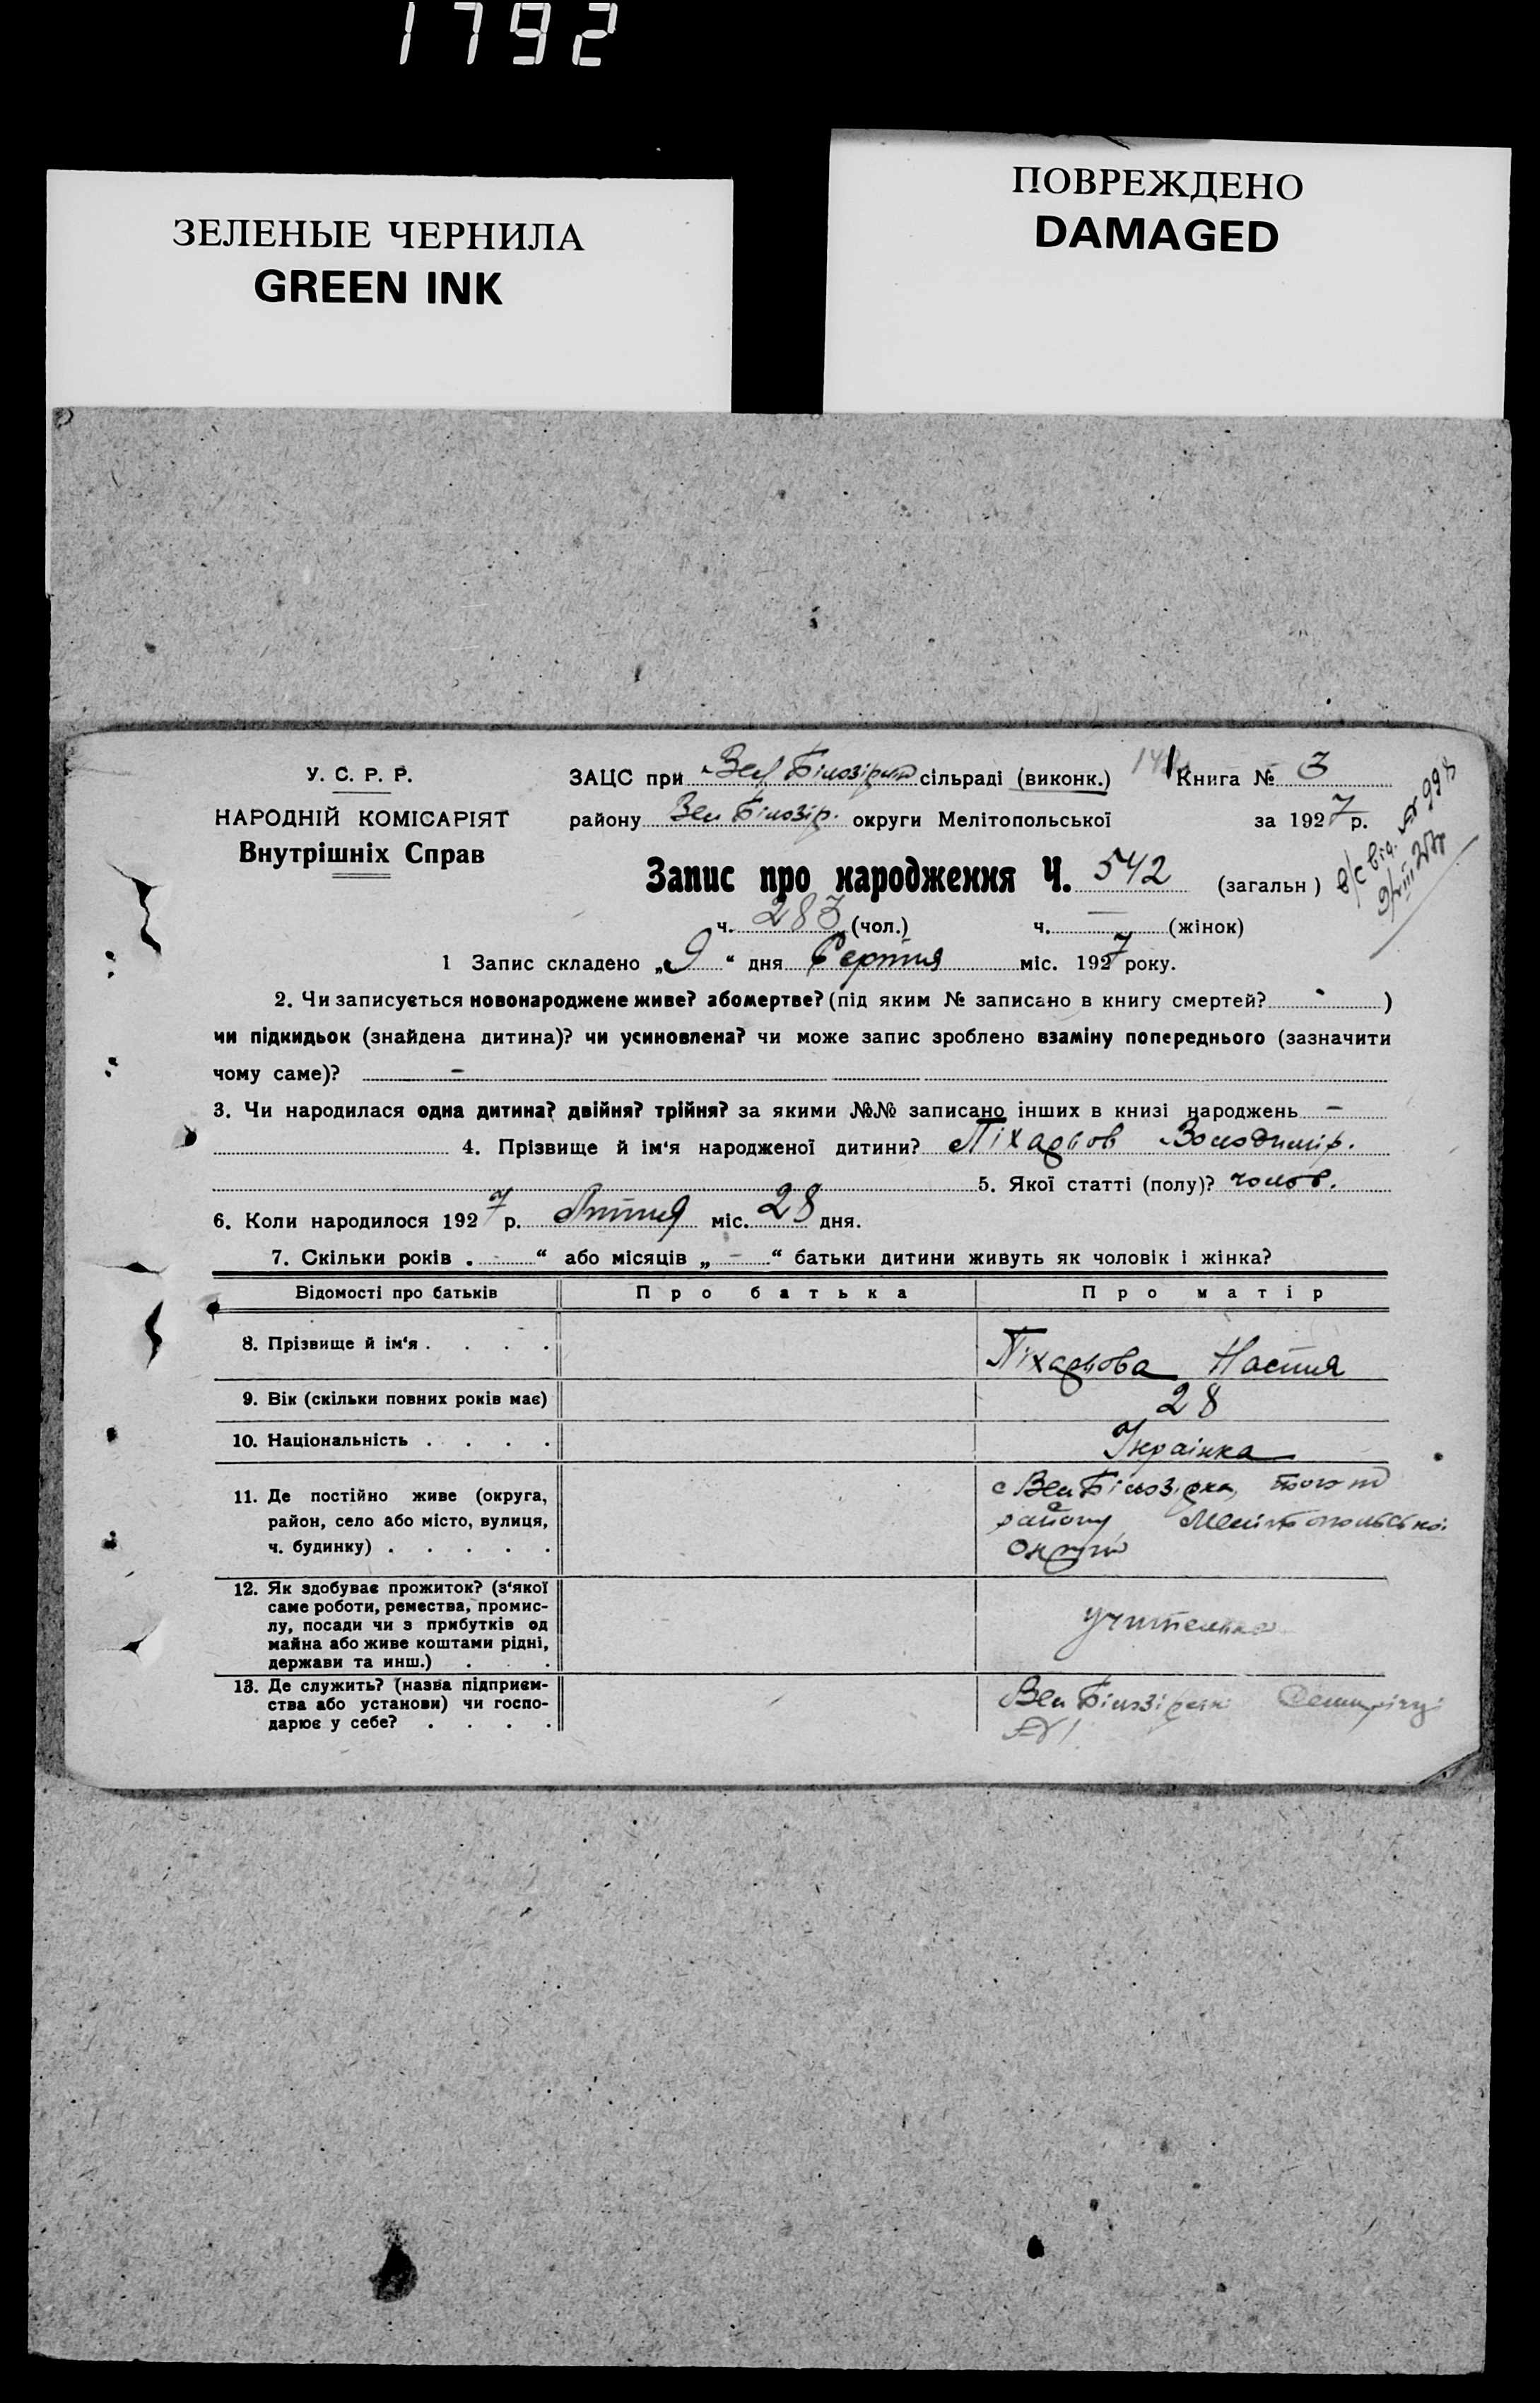 1792
ЗЕЛЕНЫЕ ЧЕРНИЛА
GREEN INK
ПОВРЕЖДЕНО
DAMAGED
У. С. Р. Р.
НАРОДНІЙ КОМІСАРІЯТ
Внутрішніх Справ
ЗАЦС при Вел Білозірці сільраді (виконк.) Книга № 3
району Вел Білозір. округи Мелітопольської за 1927 р.
Запис про народження Ч. 542 (загальн)
ч. 283 (чол.) ч. — (жінок)
1 Запис складено „9“ дня Серпня міс. 1927 року.
2. Чи записується новонароджене живе? або мертве? (під яким № записано в книгу смертей? )
чи підкидьок (знайдена дитина)? чи усиновлена? чи може запис зроблено взаміну попереднього (зазначити
чому саме)? –
3. Чи народилася одна дитина? двійня? трійня? за якими №№ записано інших в книзі народжень –
4. Прізвище й ім'я народженої дитини? Піхадьов Володимір.
5. Якої статті (полу)? чолов.
6. Коли народилося 1927 р. Липня міс. 28 дня.
7. Скільки років . — “ або місяців „ — “ батьки дитини живуть як чоловік і жінка?
Відомості про батьків Про батька Про матір
8. Прізвище й ім'я . . . . Піхадьова Настя
9. Вік (скільки повних років має) 28
10. Національність . . . . Українка
11. Де постійно живе (округа,
район, село або місто, вулиця,
ч. будинку) . . . . .
с Вел Білозірка, того ж
району Мелітопольської
округи
12. Як здобуває прожиток? (з'якої
саме роботи, ремества, промис-
лу, посади чи з прибутків од
майна або живе коштами рідні,
держави та инш.) . .
учителька
13. Де служить? (назва підприєм-
ства або установи) чи госпо-
дарює у себе? . . . .
Вел Білозірській Семирічці
№ 1